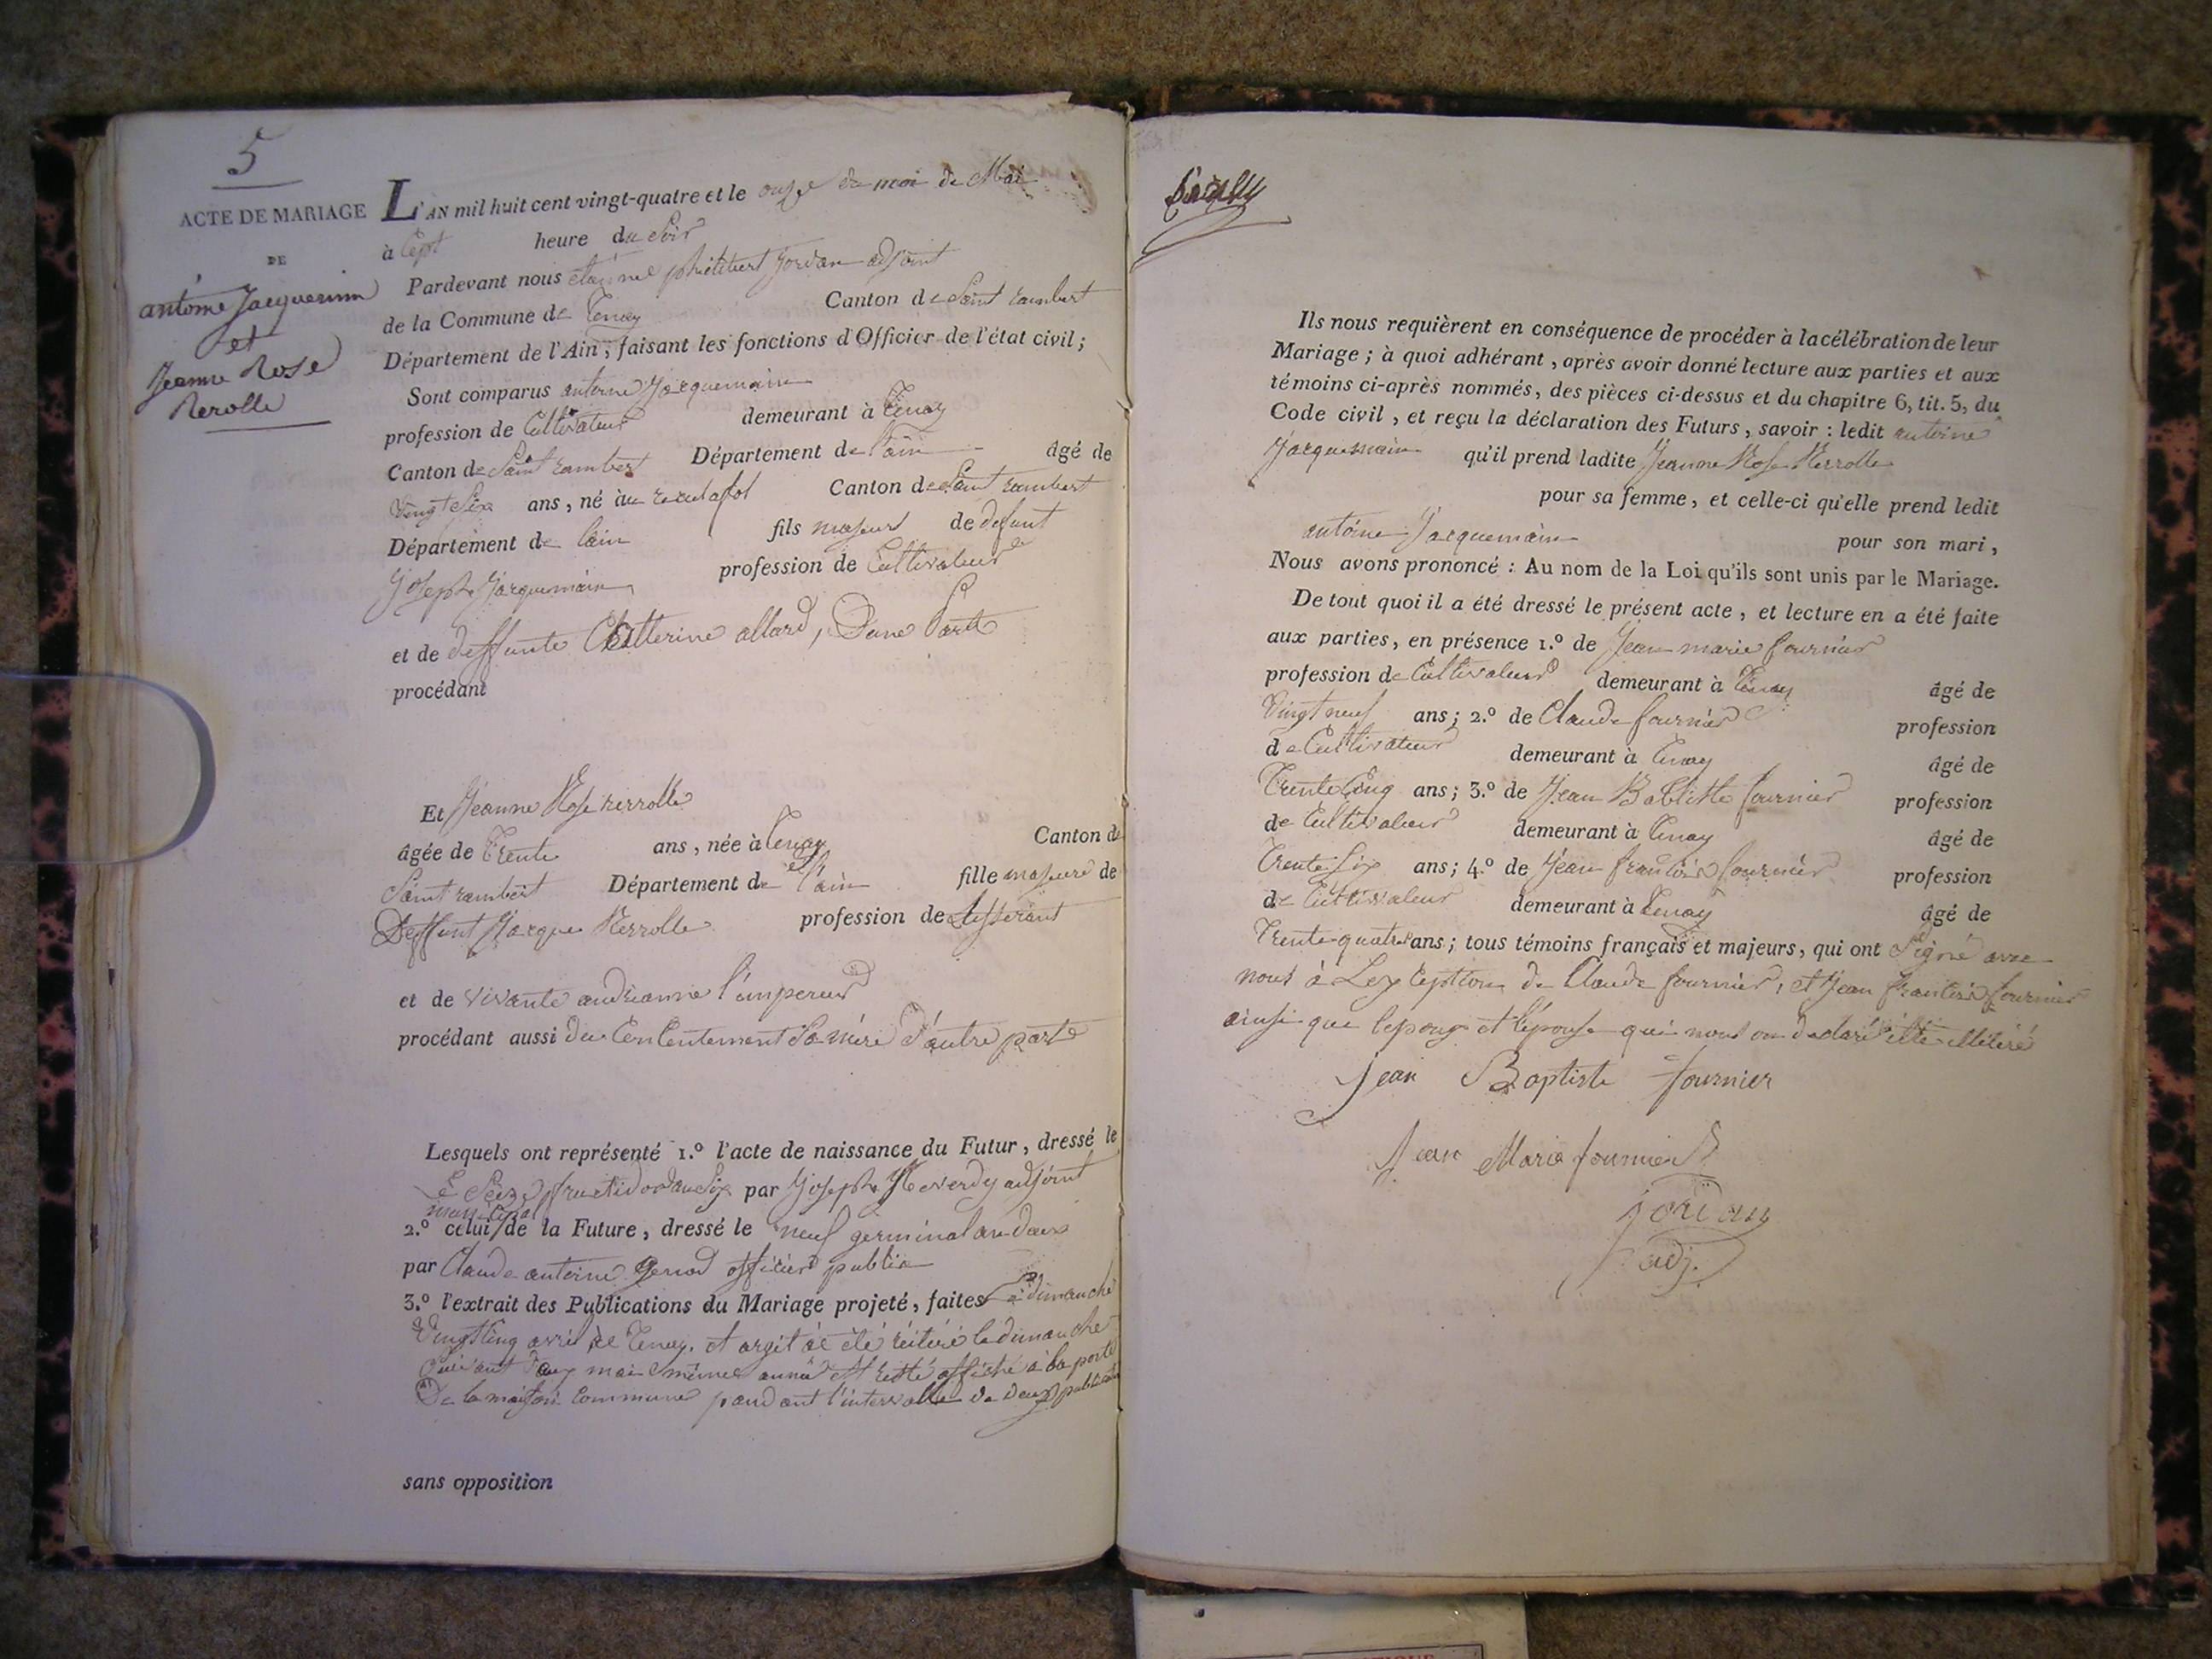 5
ACTE DE MARIAGE
DE
antoine Jacquemin
et
Jeanne Rose
Nerolle
L'AN mil huit cent vingt-quatre et le onze du moi de Mai
à Cept heure du Soir
Pardevant nous philibert Jordan adjoint
de la Commune de Tenay Canton de Saint rambert
Département de l'Ain, faisant les fonctions d'Officier de l'état civil;
Sont comparus antoine Jacquemain
profession de Cultivateur demeurant à Tenay
Canton de Saint rambert Département de l'ain âgé de
Vingt Six ans, né à Canton de Saint rambert
Département de lain fils majeur de defunt
Joseph Jacquemain profession de Cultivateur
et de deffunte Catterine allard, Dune Part
procédant
Et Jeanne Rose Nerrolle
âgée de Trente ans, née à Tenay Canton de
Saint rambert Département de l'ain fille majeure de
Deffunt Jacque Nerrolle profession de Tisserant
et de vivante andréanne l'empereur
procédant aussi du Consentement Sa mère D'autre parte
Lesquels ont représenté 1.º l'acte de naissance du Futur, dressé le
Le Seize fructidor an Six par Joseph Reverdy adjoint
municipal
2.º celui de la Future, dressé le neuf germinal an deux
par Claude antoine officier public
3.º l'extrait des Publications du Mariage projeté, faites le dimanche
Vingt Cinq avril à Tenay, et a été réitéré le dimanche
Suivant Deux mai même année et resté affiché à la porte
De la maison Commune pandant l'intervalle de deux publications
sans opposition
Ils nous requièrent en conséquence de procéder à la célébration de leur
Mariage; à quoi adhérant, après avoir donné lecture aux parties et aux
témoins ci-après nommés, des pièces ci-dessus et du chapitre 6, tit. 5, du
Code civil, et reçu la déclaration des Futurs, savoir: ledit antoine
Jacquemain qu'il prend ladite Jeanne Rose Nerrolle
pour sa femme, et celle-ci qu'elle prend ledit
antoine Jacquemain pour son mari,
Nous avons prononcé: Au nom de la Loi qu'ils sont unis par le Mariage.
De tout quoi il a été dressé le présent acte, et lecture en a été faite
aux parties, en présence 1.º de Jean marie fournier
profession de Cultivateur demeurant à Tenay âgé de
Vingt neuf ans; 2.º de Claude fournier profession
de Cultivateur demeurant à Tenay âgé de
Trente Cinq ans; 3.º de Jean Babtiste fournier profession
de Cultivateur demeurant à Tenay âgé de
Trente Six ans; 4.º de Jean francois fournier profession
de Cultivateur demeurant à Tenay âgé de
Trente quatre ans; tous témoins français et majeurs, qui ont Signé avec
nous à Lexception de Claude fournier, et Jean francois fournier
ainsi que l'epoux et l'épouse qui nous on declaré être illitéré
Jean Baptiste fournier
Jean Marie fournier
jordan
adj.